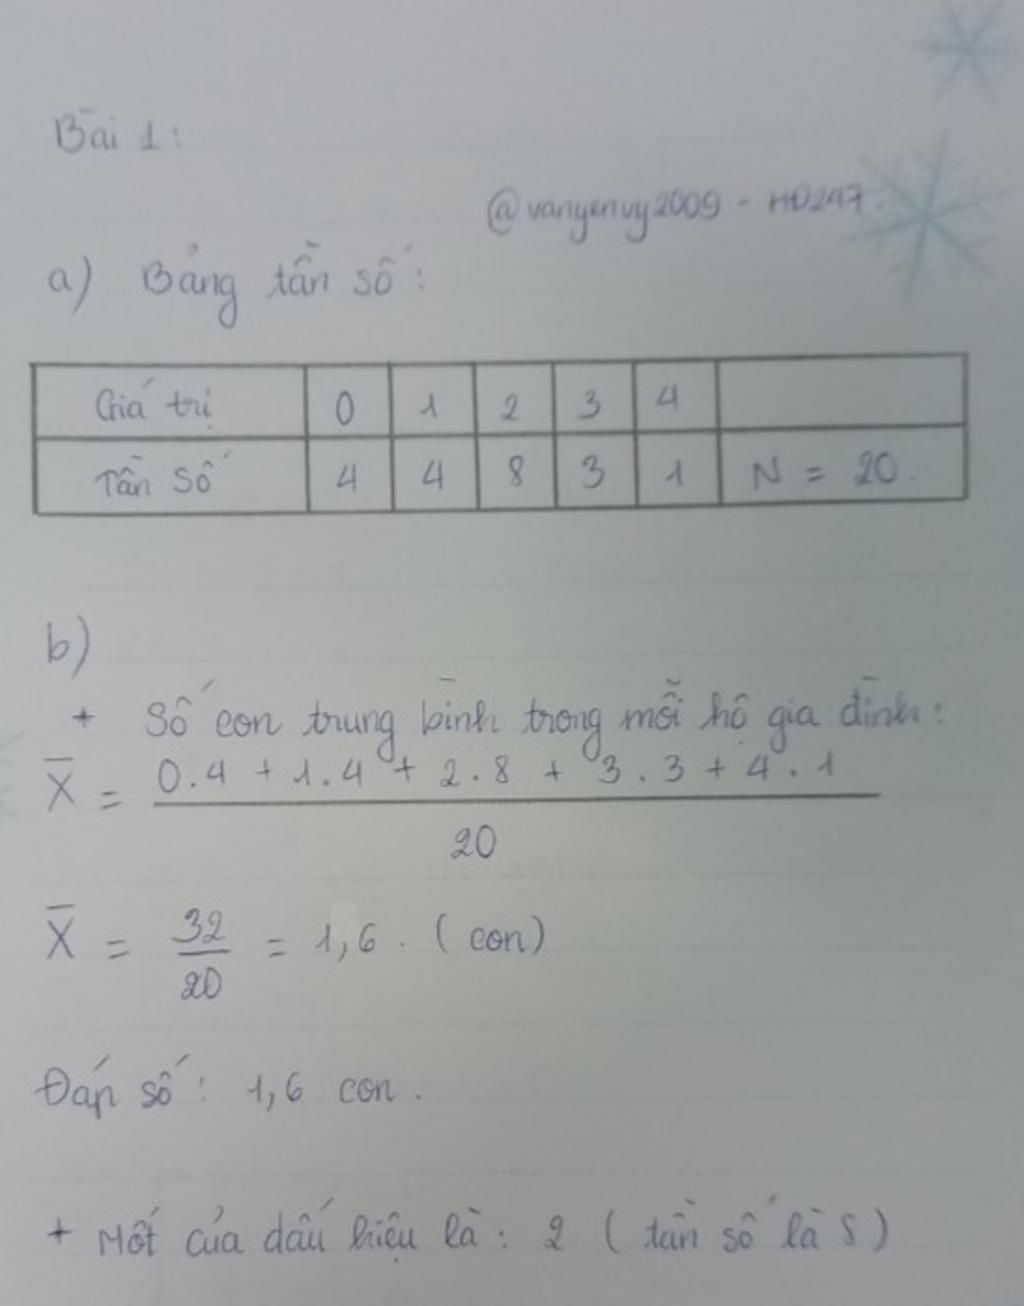 Bài 1:
@vanyenvy2009 - HD247.
a) Bảng tần số:
Giá trị 0 1 2 3 4
Tần số 4 4 8 3 1 N = 20.
b)
+ Số con trung bình trong mỗi hộ gia đình:
X̄ = 0.4 + 1.4 + 2.8 + 3.3 + 4.1
20
X̄ = 32/20 = 1,6. (con)
Đáp số: 1,6 con.
+ Mốt của dấu hiệu là: 2 (tần số là 8)